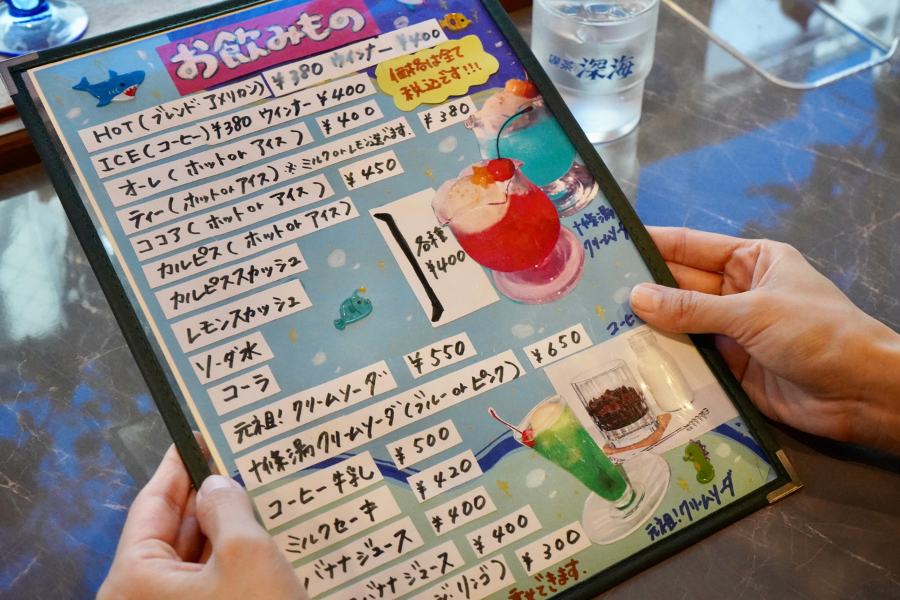 お飲みもの
価格は全て
税込です!!!
喫茶 深海
HOT(ブレンド アメリカン) ¥380 ウインナー ¥400
ICE(コーヒー)¥380 ウインナー ¥400
オーレ( ホット or アイス) ¥400
ティー(ホット or アイス) ※ ミルク or レモン選べます。 ¥380
ココア(ホット or アイス) ¥450
カルピス( ホット or アイス)
カルピススカッシュ
レモンスカッシュ
ソーダ水
コーラ
各種
¥400
十條湯
クリームソーダ
元祖! クリームソーダ ¥550
十條湯クリームソーダ(ブルー or ピンク) ¥650
コーヒー牛乳 ¥500
ミルクセーキ ¥420
バナナジュース ¥400
バナナジュース ¥400
リンゴ) ¥300
できます。
コーヒ
元祖!クリームソーダ